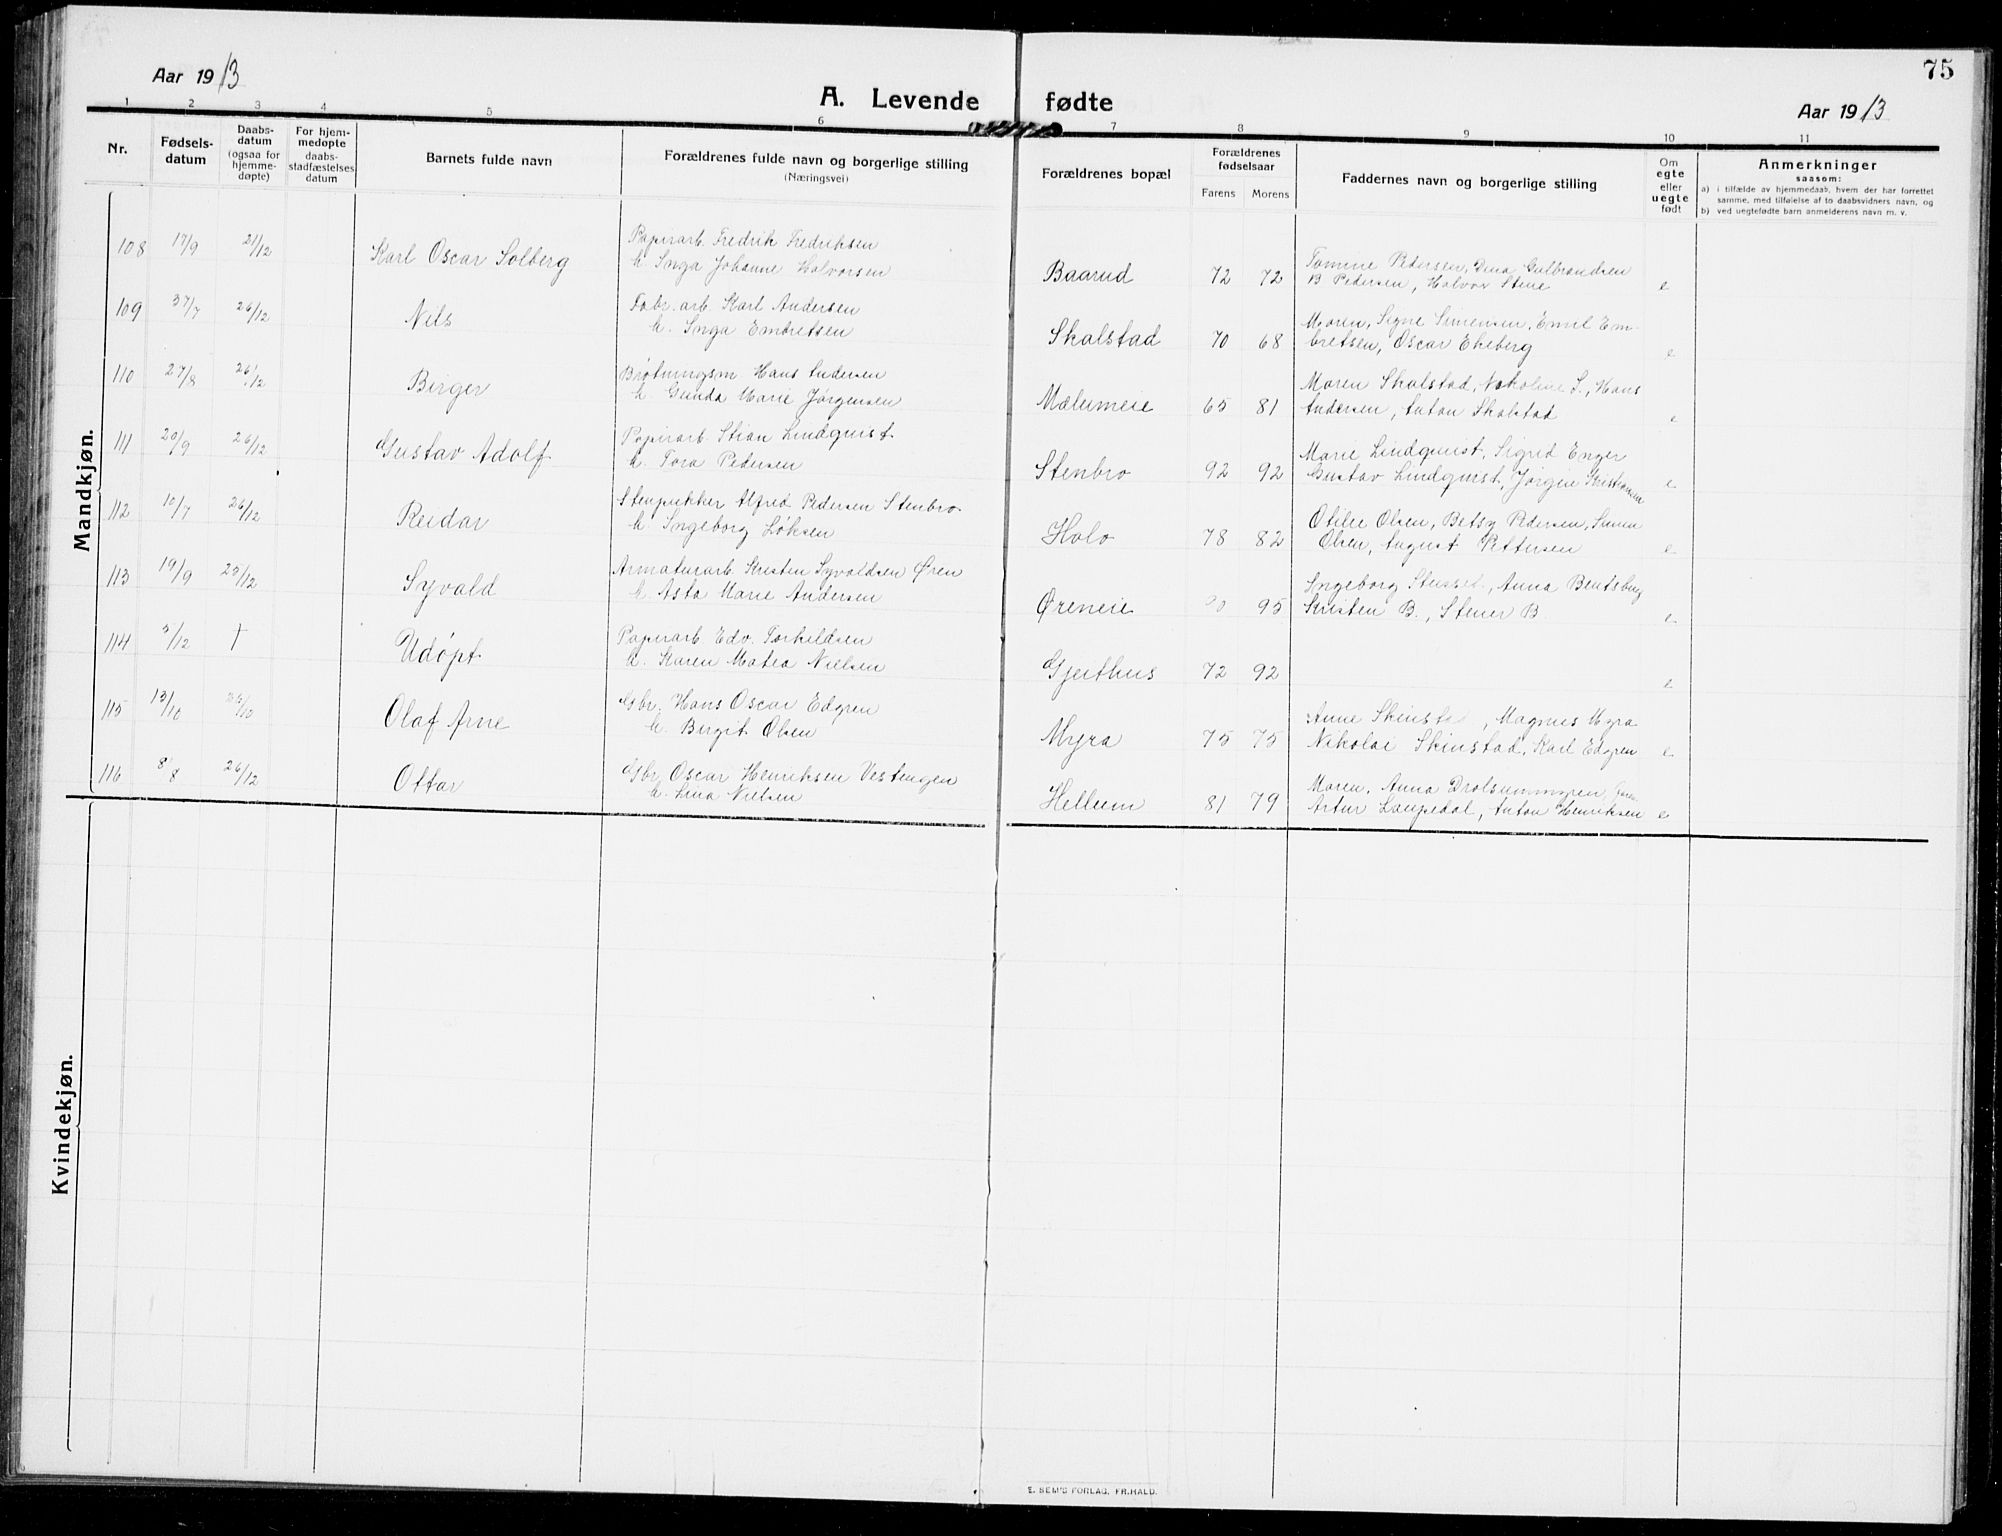 75
Aar 1913
A. Levende fødte
Aar 1913
1 2 3 4 5 6 7 8 9 10 11
Nr.
Fødsels-
datum
Daabs-
datum
(ogsaa for
hjemme-
døpte)
For hjem-
medøpte
daabs-
stadfæstelses
datum
Barnets fulde navn
Forældrenes fulde navn og borgerlige stilling
(Næringsvei)
Forældrenes bopæl
Forældrenes
fødselsaar
Farens Morens
Faddernes navn og borgerlige stilling
Om
egte
eller
uegte
født
Anmerkninger
saasom:
a) i tilfælde av hjemmedaab, hvem der har forrettet
samme, med tilføielse af to daabsvidners navn, og
b) ved uegtefødte barn anmelderens navn m. v.
Mandkjøn.
108 17/9 21/12 Karl Oscar Solberg
Papirarb. Fredrik Fredriksen
h. Inga Johanne Halvorsen
Baarud 72 72
Tomine Pedersen, Dina Gulbrandsen
B Pedersen, Halvor Stene e
109 26/12 Nils
Fabr. arb. Karl Andersen
h. Inga Embretsen
Skalstad 70 68
Moren, Signe Simensen, Emil Em-
bretsen, Oscar Ekeberg e
110 27/8 26/12 Birger
Brøtningsm. Hans Andersen
h. Gunda Marie Jørgensen
Mælumeie 65 81
Maren Skalstad, Nikoline S., Hans
Andersen, Anton Skalstad e
111 20/9 26/12 Gustav Adolf
Papirarb. Stian Lindquist
h. Tora Pedersen
Stenbro 92 92
Marie Lindquist, Sigrid Enger
Gustav Lindquist, Jørgen Kristiansen e
112 10/7 26/12 Reidar
Stenpukker Alfred Pedersen Stenbro
h. Ingeborg Løksen
Holo 78 82
Otilie Olsen, Betsy Pedersen, Simen
Olsen, August Pettersen e
113 19/9 25/12 Syvald
Armaturarb. Kristen Syvaldsen Øren
h. Asta Marie Andersen
Øreneie 90 95
Ingeborg Anna Bentsbug
Kristen B., Stener B. e
114 5/12 † Udøpt
Papirarb. Edv. Torkeldsen
h. Karen Matea Nielsen
Gjeithus 72 92 e
115 13/10 26/10 Olaf Arne
Gbr. Hans Oscar Edgren
h. Birgit Olsen
Myra 75 75
Anne Skinstad, Magnus Myra
Nikolai Skinstad, Karl Edgren e
116 8/8 26/12 Ottar
Gbr. Oscar Henriksen Vestengen
h. Lina Nielsen
Hellum 81 79
Moren, Anna
Artur Anton Henriksen e
Kvindekjøn.
E. SEM'S FORLAG, FR.HALD.